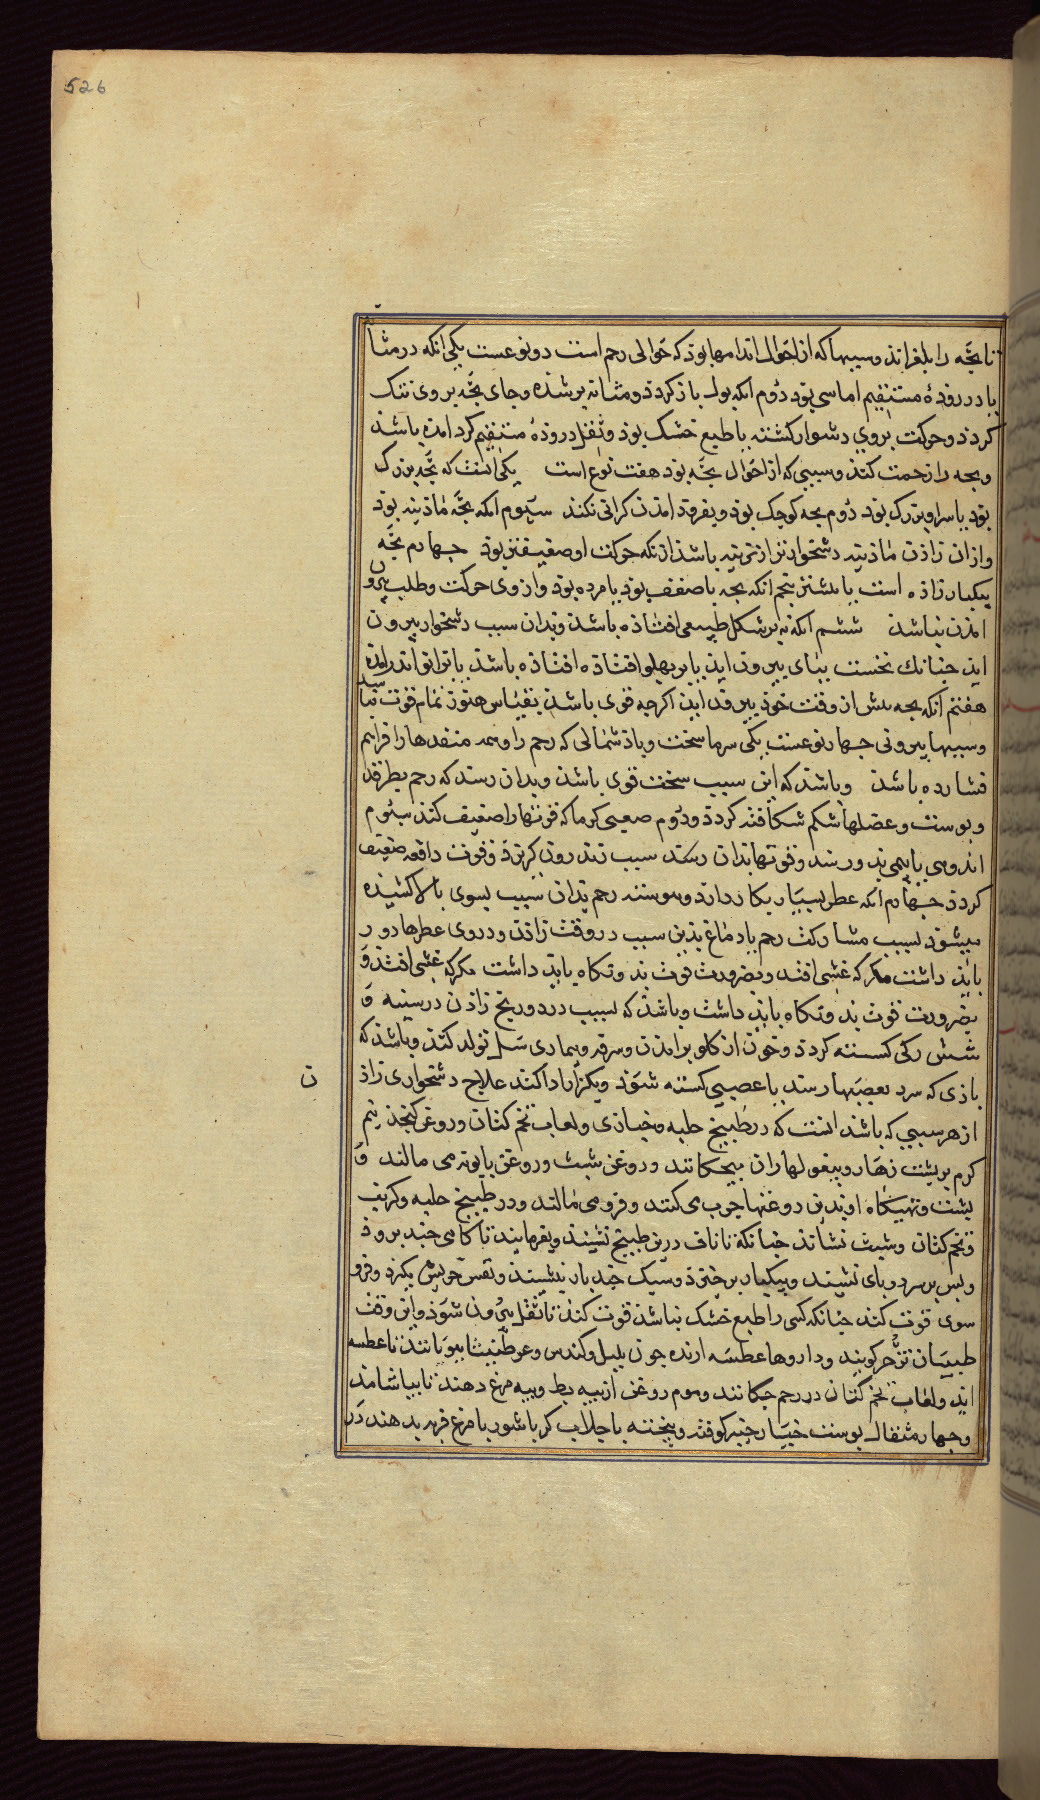 526
تا بچّه را بلغزاند وسببها که از احوال اندامها بود که حوالی رحم است دو نوعست یکی انکه در مثا
یا در رودهٔ مستقیم اماسی بود دُوم انکه بول باز کرد ومثانه پر شده وجای بچّه بروی تنک
کردد وحرکت بروی دشوار کشته یا طبع خشک بود وثفل در رودهٔ مستقیم کرد امده باشد
وبچه را زحمت کند وسببی که از احوال بچّه بود هفت نوع است یکی انست که بچّه بزرک
بود یا سر او بزرک بود دُوم بچه کوچک بود وبفرود امدن کرانی نکند سیوم انکه بچّه ماذینه بود
وزادن ماذینه دشخوارتر از نرینه باشد ازانکه حرکت او ضعیفتر بود چهارم بچّه
بیکبار زاده است یا بیشتر پنجم انکه بچه یا ضعیف بود یا مرده بود واز وی حرکت وطلب بیرو
امدن نباشد ششم انکه نه بر شکل طبیعی افتاذه باشد وبدان سبب دشخوار بیرون
اید چنانک نخست بپای بیرون اید یا بر پهلو افتاده افتاده باشد یا بزانو اندر امده
هفتم انکه بچه پیش از وقت خوذ بیرون اید اکرچه قوی باشد بقیاس هنوز تمام قوت نبا
شد
وسببها بیرونی چهار نوعست یکی سرما سخت وباذ شمالی که رحم را وهمه منفدها را فراهم
فشارده باشد وباشد که این سبب سخت قوی باشد وبدان رسد که رحم بطرقد
وپوست وعضلها شکم شکافته کردد ودُوم صعبی کرما که قوتها را ضعیف کند سیُوم
اندوهی یا بیمی بد ورسد وقوتها بدان سبب تند روی کریزد وقوت دافعه ضعیف
کردد چهارم انکه عطر بسیار بکار دارد وپیوسته رحم بدان سبب بسوی بالا کشیده
میشود بسبب مشارکت رحم با دماغ بدین سبب در وقت زادن ودر وی عطرها دور
باید داشت مکر که غشی افتد وبضرورت قوت بد ونکاه باید داشت مکر که غشی افتد وَ
بضرورت قوت بد ونکاه باید داشت وباشد که بسبب درد ورنج زادن در سینه وَ
شش رکی کسسته کردد وخون از کلو بر امدن وسرفه وبیماری سل تولد کند وباشد که
باذی که سرد بعصبها رسد یا عصبی کسسته شود وبکزار ادا کند علاج دشخواری زاذ
ن
از هر سببی که باشد انست که در طبیخ حلبه وخبازی ولعاب تخم کتان وروغن کنجد نیم
کرم بر پشت زهار وبیغولها ران بیجکانند وروغن شبت وروغن بابونه می مالند وَ
پشت وتهیکاه او بدین روغنها چرب می کنند وفرو می مالند ودر طبیخ حلبه وکرنب
وتخم کتان وشبت نشانند چنانکه تا ناف درین طبیخ نشیند وبفرمایند تا کامی چند برود
وپس بر سر دو پای نشیند وبیکبار برخیزد وسبک چند بار بنشیند ونفس خویش بکیرد وفرو
سوی قوت کند چنانکه کسی را طبع خشک بباشد قوت کند تا ثفل بیرون شود واین وقت
طبیبان تزحّر کویند وداروها عطسه ارنده چون پلپل وکندس وعرطنیثا ببویانند تا عطسه
اید ولعاب تخم کتان در رحم چکانند وموم روغن از پیه بط وپیه مرغ دهند تا بیاشامند
وچهار مثقال پوست خیار چنبر کوفته وپخته با جلاب کرم یا شوربا مرغ فربه بدهند در